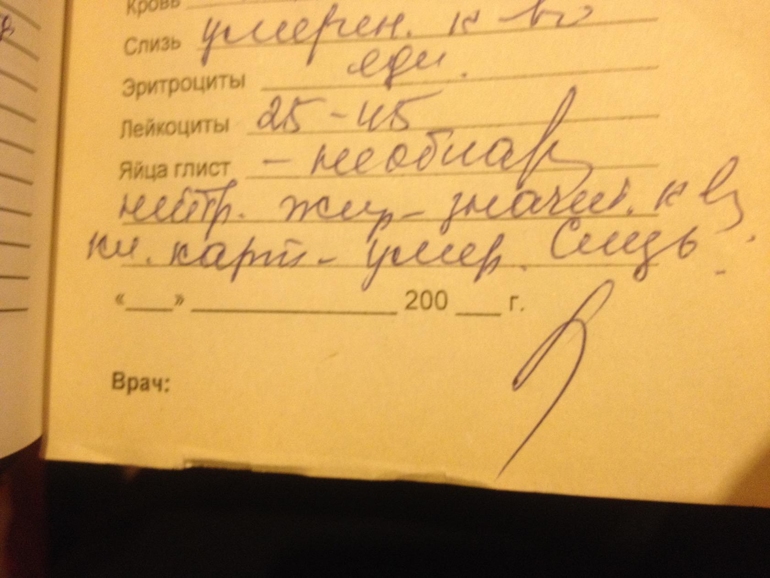 Кровь
Слизь умерен. к-во
Эритроциты един.
Лейкоциты 25-45
Яйца глист - необнар
нейтр. жир - значит. к-во
кл. карт - умер. Слизь.
«___» ____________ 200 ___ г.
Врач: